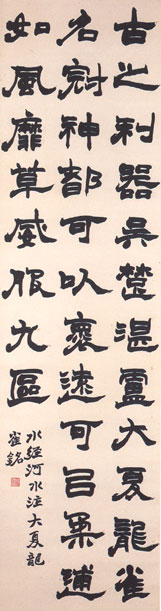 古之利器吳楚湛盧大夏龍雀
名冠神都可以褱遠可㠯柔逋
如風靡草威服九區
水經河水注大夏龍
雀銘